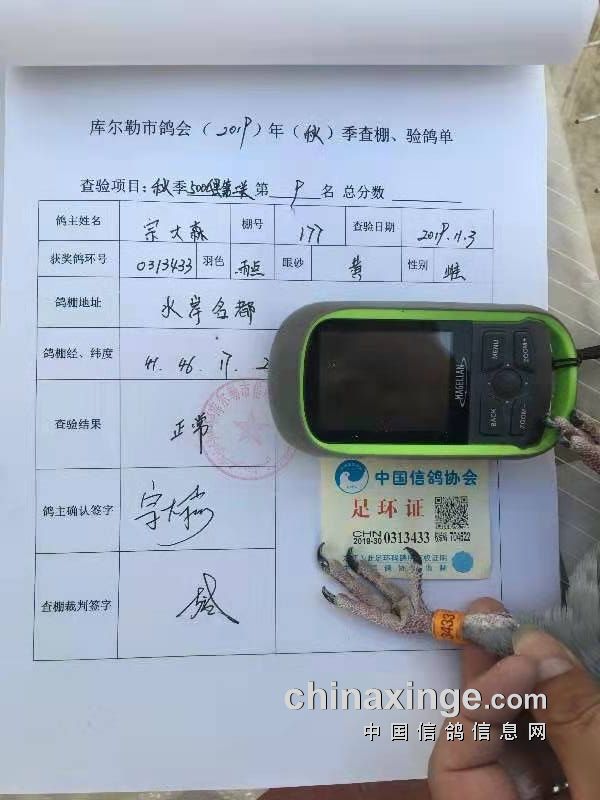 库尔勒市鸽会（2019）年（秋）季查棚、验鸽单
查验项目：秋季500公里第一关 第 9 名 总分数
鸽主姓名 宗大森 棚号 177 查验日期 2019.11.3
获奖鸽环号 0313433 羽色 雨点 眼砂 黄 性别 雌
鸽棚地址 水岸名都
鸽棚经、纬度 41.46.17.2
查验结果 正常
鸽主确认签字 宗大森
查棚裁判签字
MENU ZOOM+
MAGELLAN
BACK ZOOM-
中国信鸽协会
足环证
CHN
2019-30 0313433 704622
3433
chinaxinge.com
中国信鸽信息网